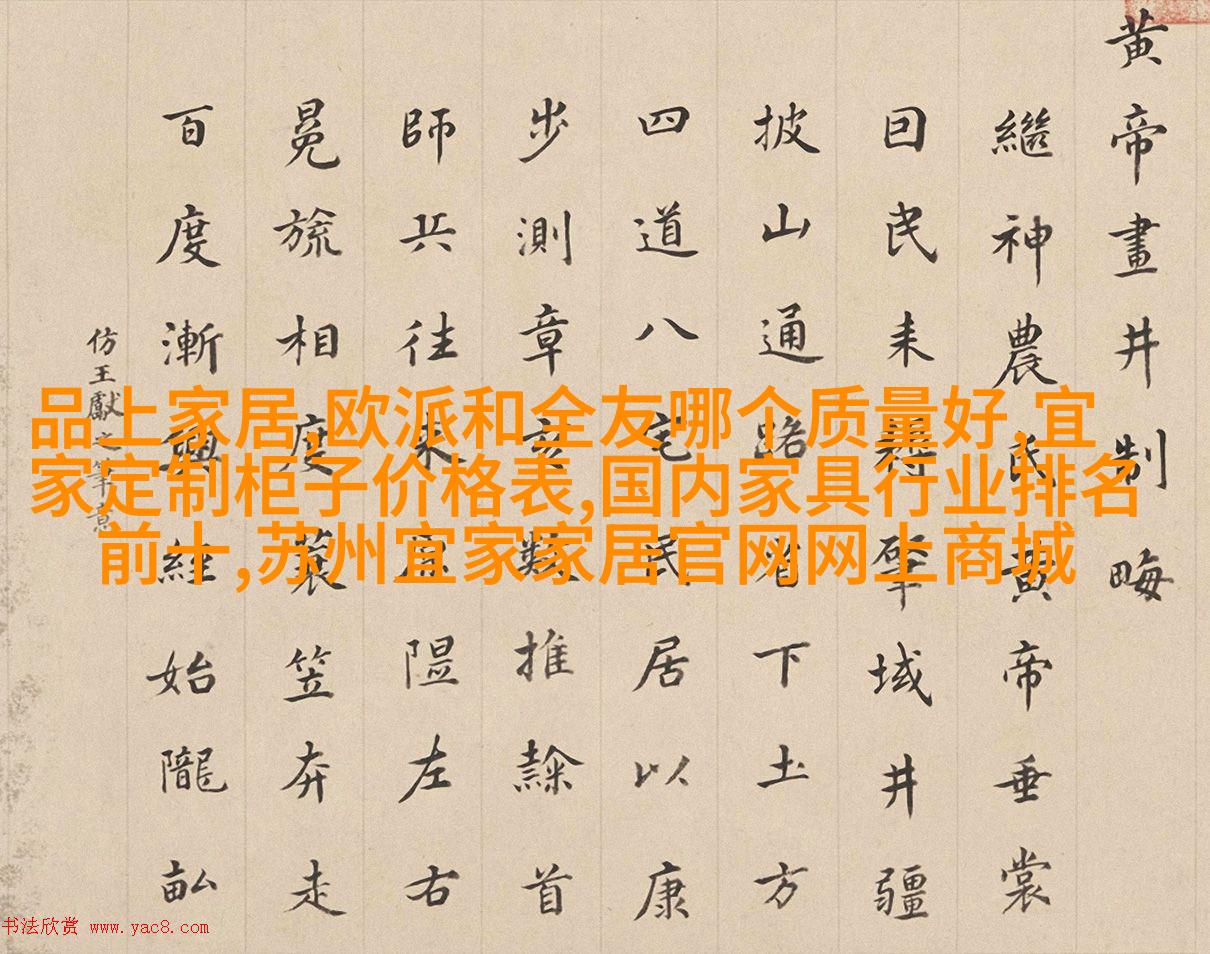 黄帝畫井制畮
繼神農氏黄帝垂裳
囙民耒耨肇域井疆
披山通路省下土方
四道八宅民居以康
步測章亥數推隸首
師兵往来原隰左右
冕旒相度蓑笠奔走
百度漸興經始隴畝
仿王獻之筆意
品上家居,欧派和全友哪个质量好,宜
家定制柜子价格表,国内家具行业排名
前十,苏州宜家家居官网网上商城
书法欣赏 www.yac8.com